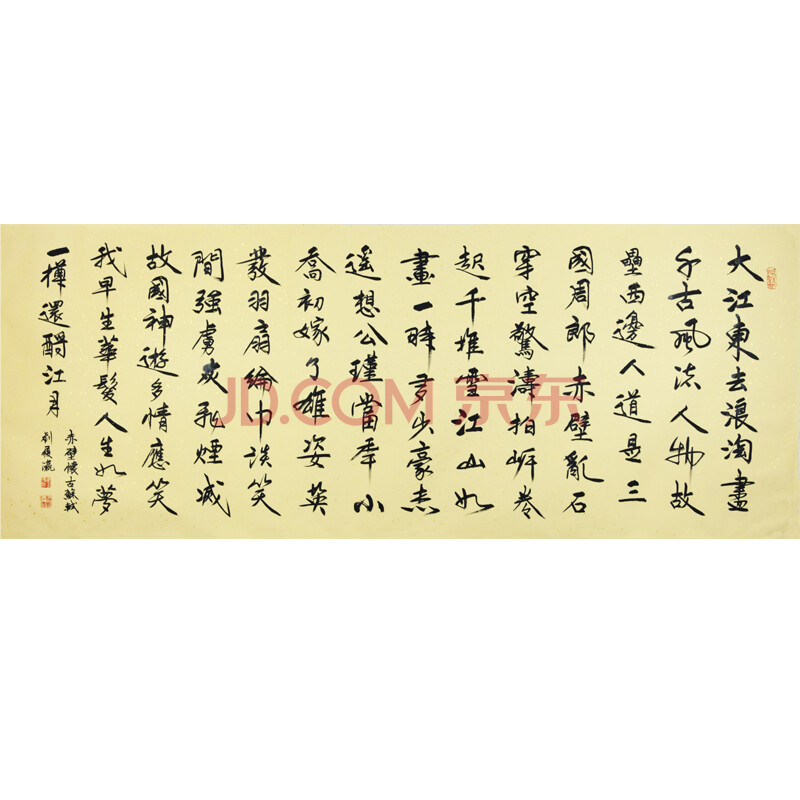 大江東去浪淘盡
千古風流人物故
壘西邊人道是三
國周郎赤壁亂石
穿空驚濤拍岸卷
起千堆雪江山如
畫一時多少豪杰
遥想公瑾當年小
喬初嫁了雄姿英
發羽扇綸巾談笑
間强虜灰飛煙滅
故國神遊多情應笑
我早生華髮人生如夢
一樽還酹江月
赤壁懷古蘇軾
JD.COM 京东